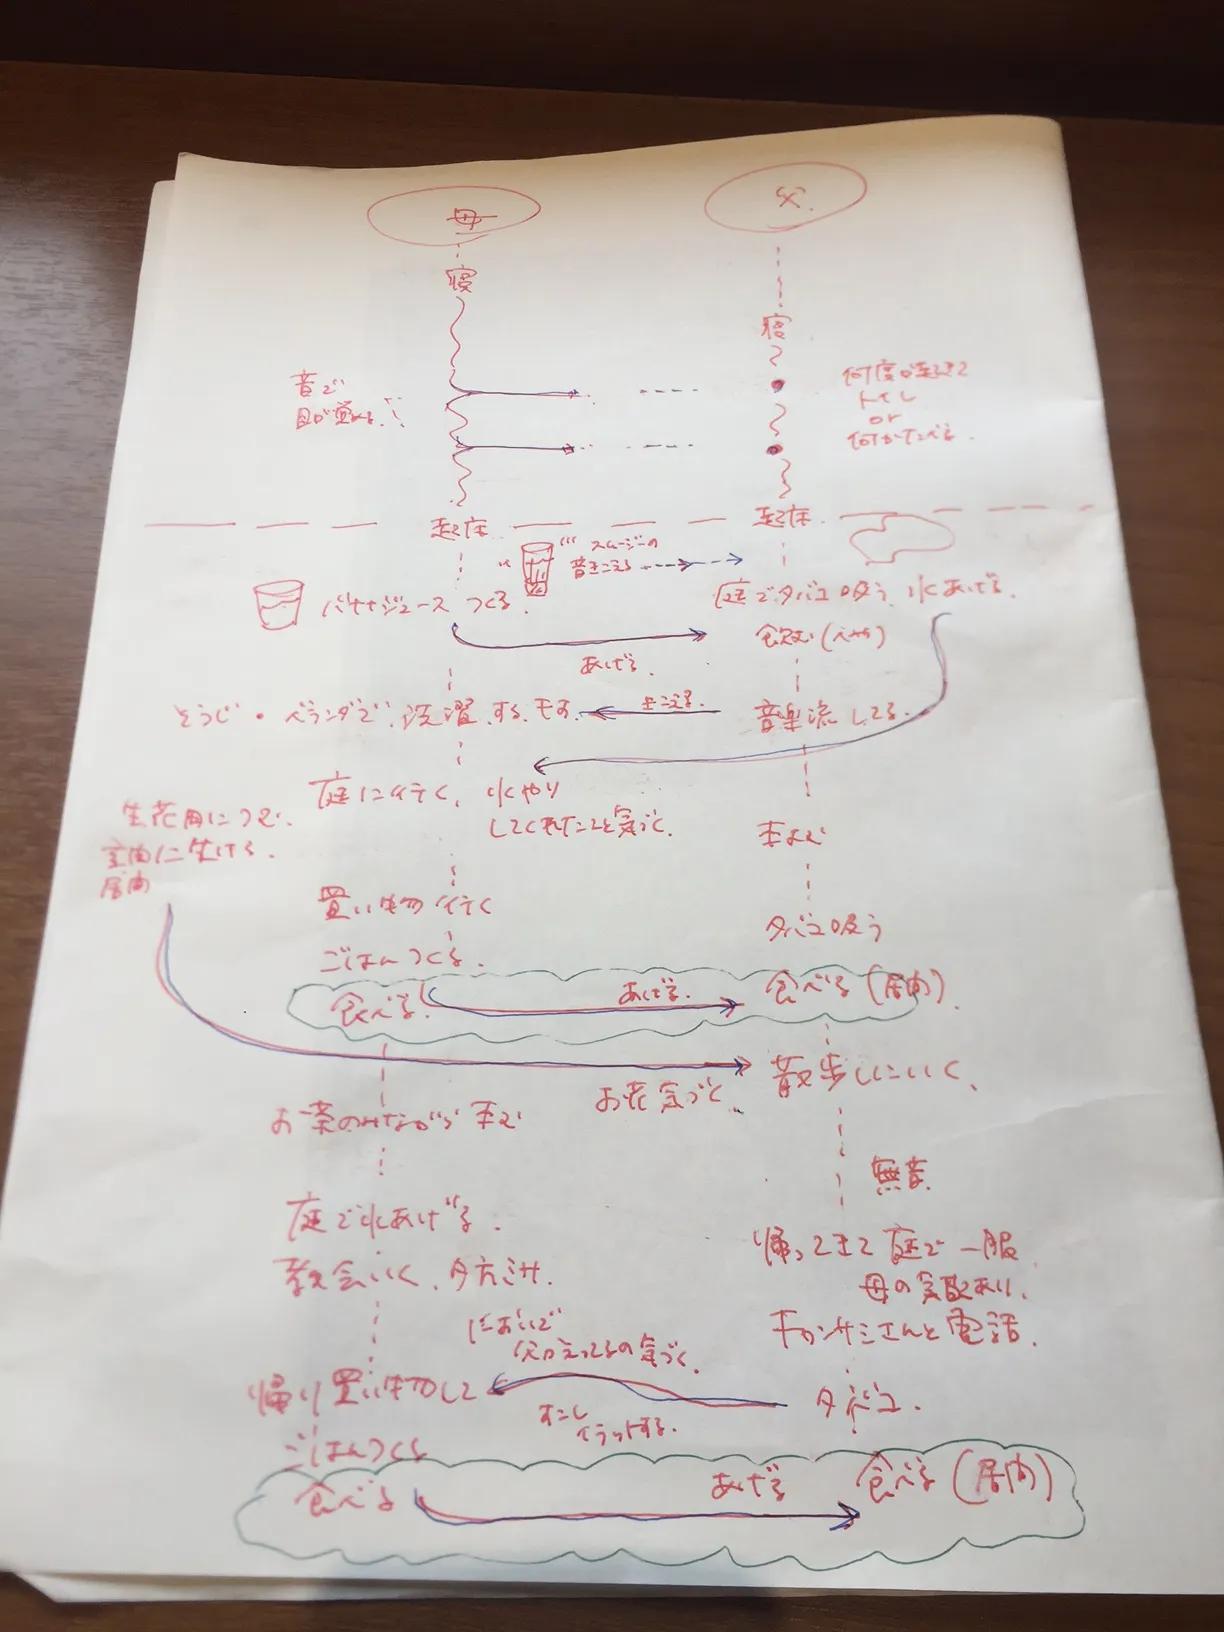 母
父
寝
寝
音で
目が覚める
何度か起きて
トイレ
or
何か食べる
起床
起床
スムージーの
音きこえる
バナナジュース つくる
庭でタバコ吸う 水あげる
飲む
あげる
そうじ・ベランダで 洗濯 する
きこえる
音楽流してる
庭に行く 水やり
してくれたこと気づく
生花用につむ
玄関に生ける
居間
本よむ
買い物行く
タバコ吸う
ごはんつくる
食べる
あげる
食べる(居間)
散歩しにいく
お花気づく
お茶のみながら 本よむ
無音
庭で水あげる
教会いく 夕方ミサ
帰ってきて 庭で一服
母の気配あり
さんと電話
においで
父が
の気づく
帰り買い物して
タバコ
すこし
イラッとする
ごはんつくる
食べる
あげる
食べる(居間)